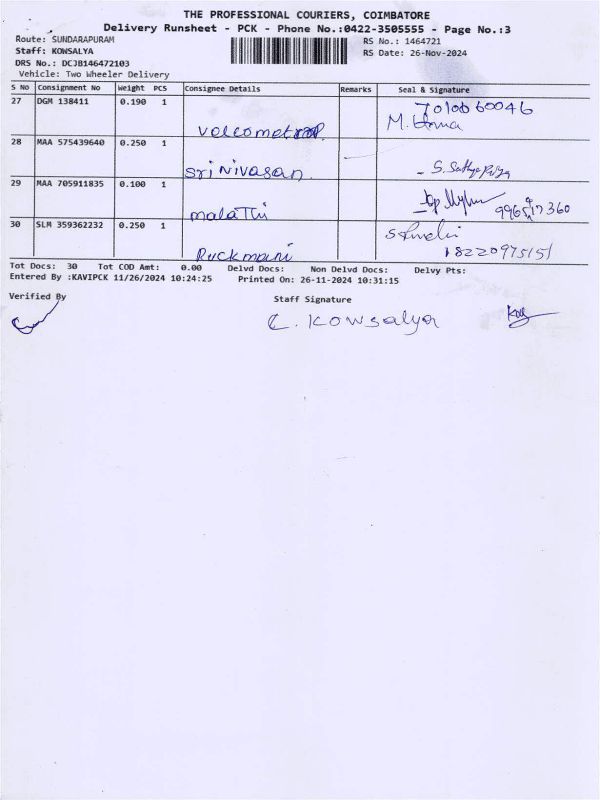 THE PROFESSIONAL COURIERS, COIMBATORE
Delivery Runsheet - PCK - Phone No.:0422-3505555 - Page No.:3
Route: SUNDARAPURAM
RS No.: 1464721
Staff: KOWSALYA
RS Date: 26-Nov-2024
DRS No.: DCJB146472103
Vehicle: Two Wheeler Delivery
S No Consignment No Weight PCS Consignee Details Remarks Seal & Signature
27 DGM 138411 0.190 1
M.
28 MAA 575439640 0.250 1 Srinivasan S. Sathya Priya
29 MAA 705911835 0.100 1 malathi
30 SLM 359362232 0.250 1 Ruckmani
Tot Docs: 30 Tot COD Amt: 0.00 Delvd Docs: Non Delvd Docs: Delvy Pts:
Entered By :KAVIPCK 11/26/2024 10:24:25 Printed On: 26-11-2024 10:31:15
Verified By
Staff Signature
C. Kowsalya